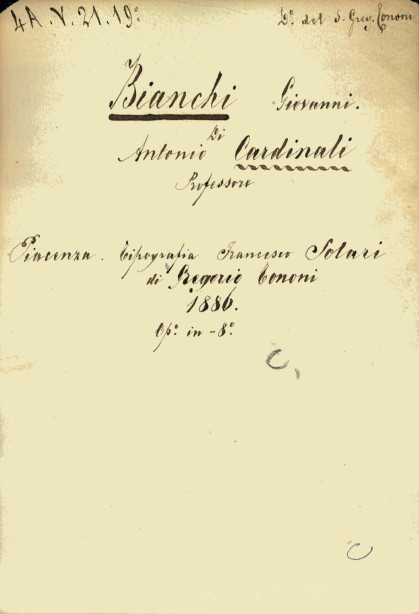 4A.V.21.19º
Dº. del S. Greg. Tononi
Bianchi Giovanni.
Di
Antonio Cardinali
Professore
Piacenza. Tipografia Francesco Solari
di Gregorio Tononi
1886.
Opº. in-8º.
C.
C